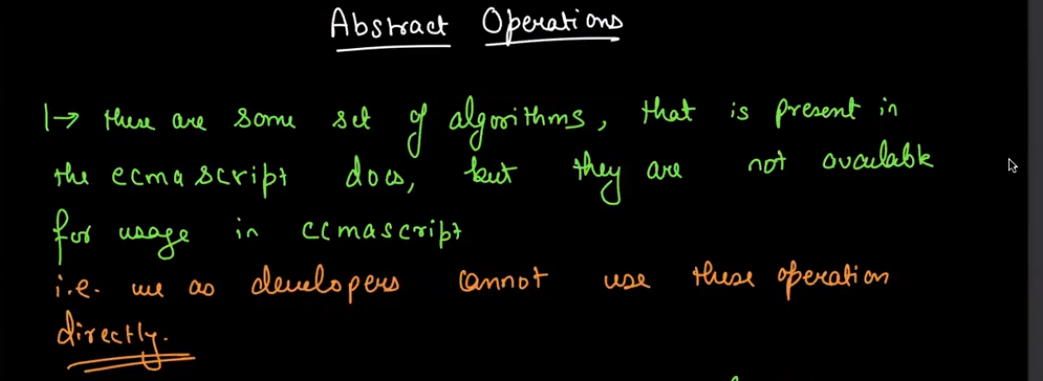 Abstract Operations
1→ these are some set of algorithms, that is present in
the ecma script docs, but they are not available
for usage in ecmascript
i.e. we as developers cannot use these operation
directly.